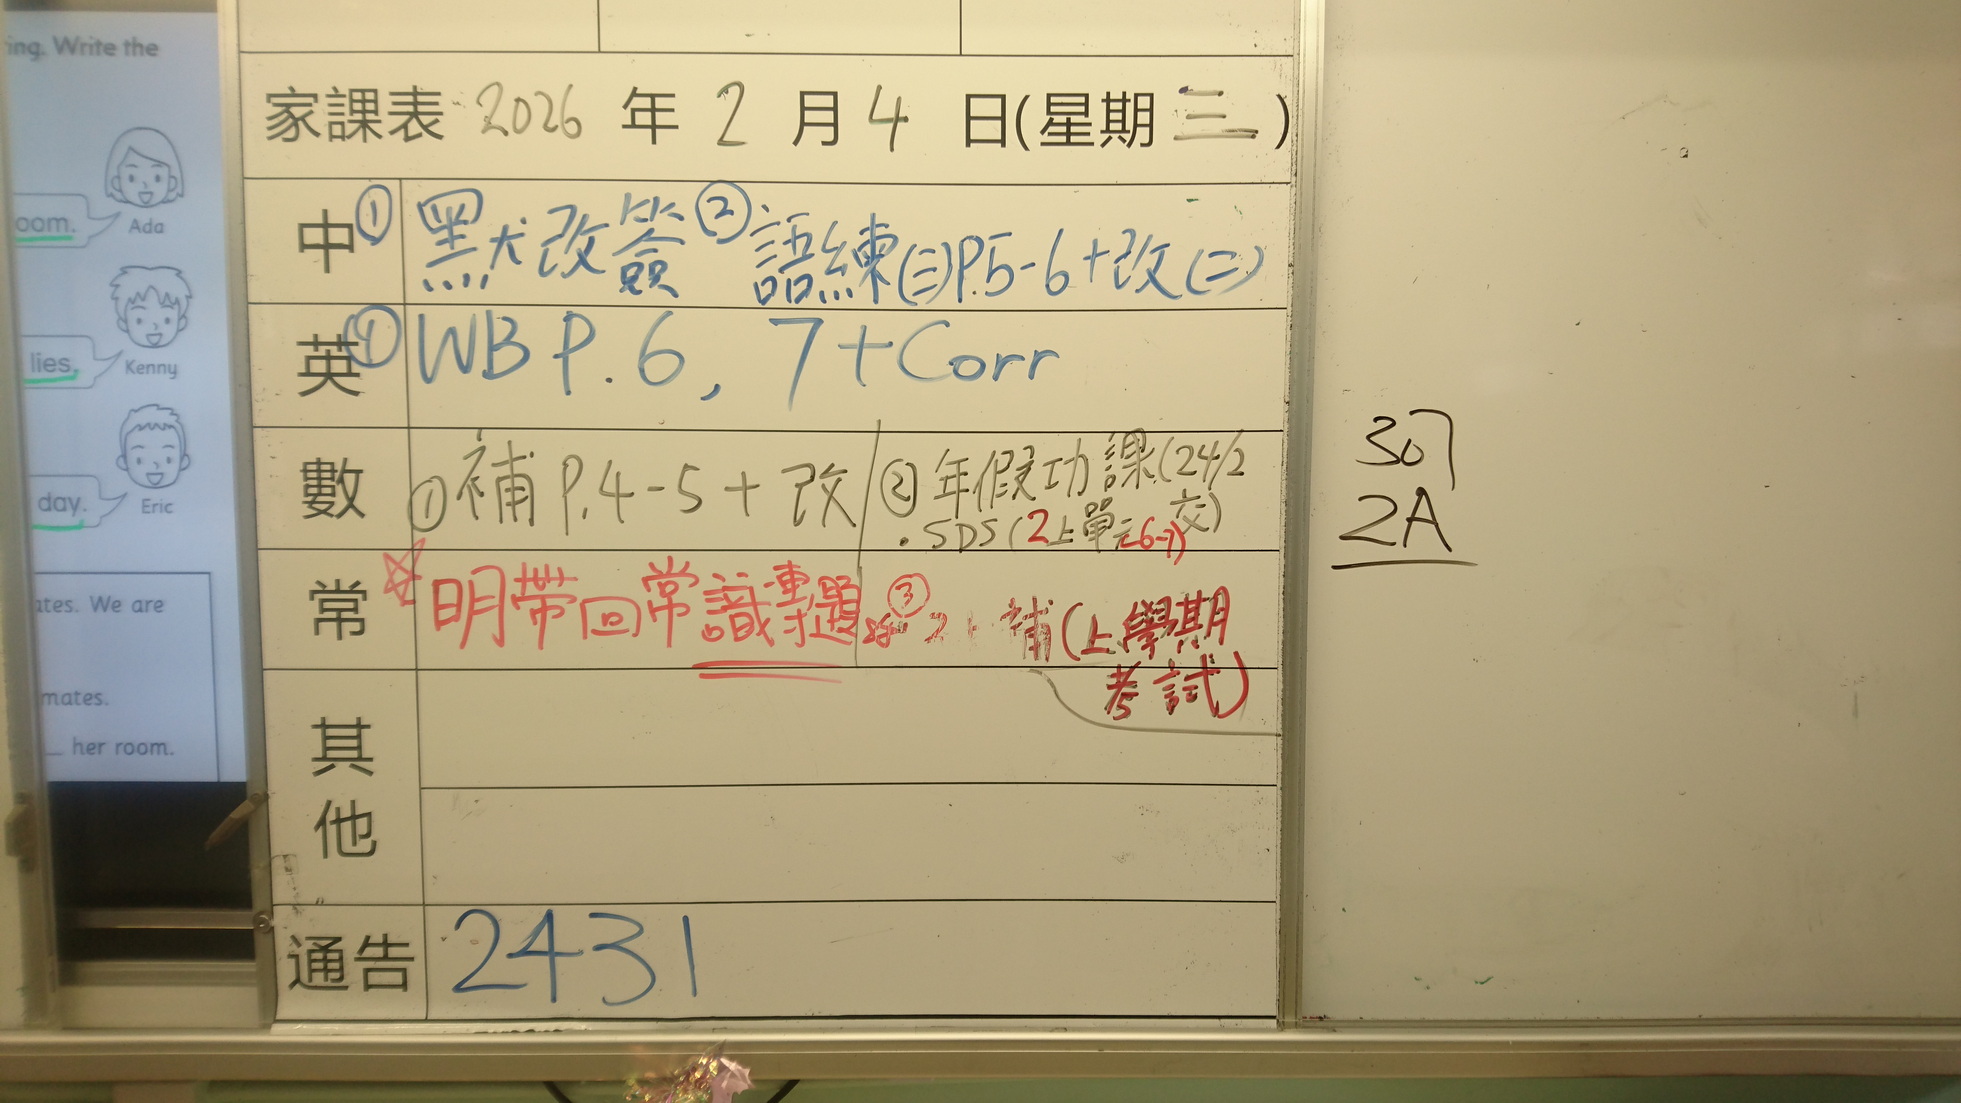 ing. Write the
oom.
Ada
lies.
Kenny
day.
Eric
ates. We are
mates.
her room.
家課表 2026 年 2 月 4 日(星期三)
中 ① 默改簽 ② 語練(三)P.5-6+改(二)
英 ① WB P.6, 7+Corr
數 ① 補 P.4-5+改 ② 年假功課(24/2交)
· SDS(2上單元6-7)
常 ☆明帶回常識專題 ③ 補(上學期
考試)
其他
通告 2431
307
2A